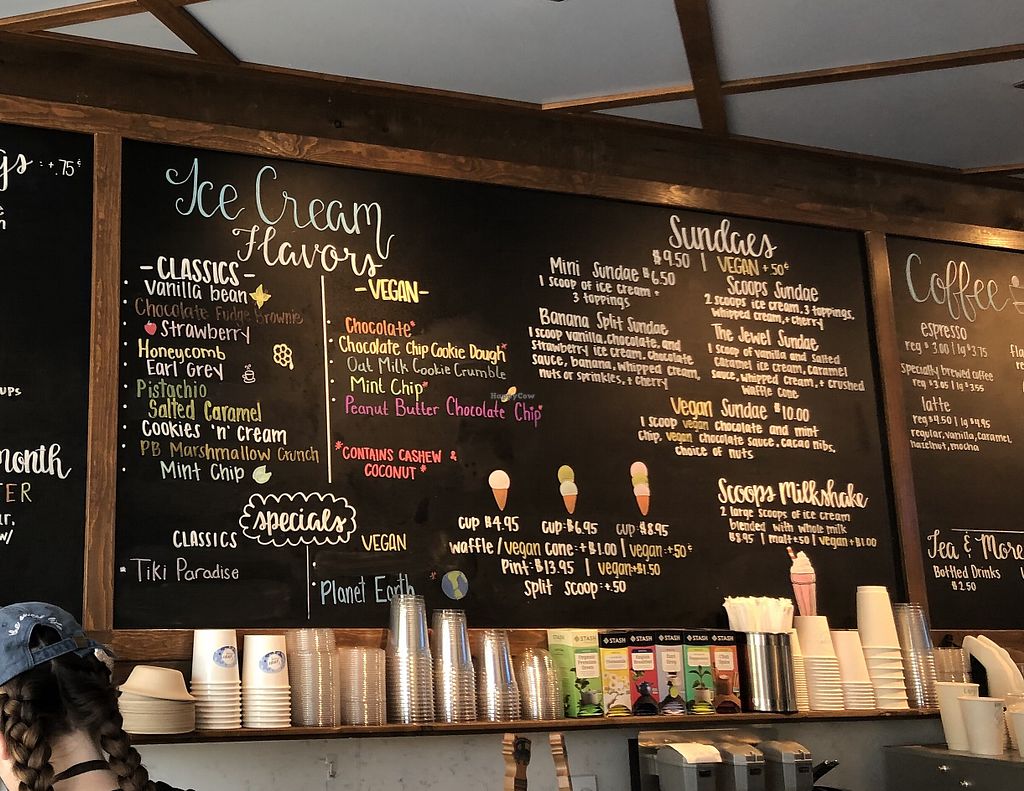 gs : +.75¢
UPS
month
TER
w/
Ice Cream
Flavors
-CLASSICS-
Vanilla bean
Chocolate Fudge Brownie
Strawberry
Honeycomb
Earl Grey
Pistachio
Salted Caramel
Cookies 'n' Cream
PB Marshmallow Crunch
Mint Chip
-VEGAN-
Chocolate*
Chocolate Chip Cookie Dough*
Oat Milk Cookie Crumble
Mint Chip*
Peanut Butter Chocolate Chip*
*CONTAINS CASHEW &
COCONUT*
specials
CLASSICS
Tiki Paradise
VEGAN
Planet Earth
Sundaes
$9.50 | VEGAN +50¢
Mini Sundae $6.50
1 scoop of ice cream +
3 toppings
Banana Split Sundae
1 scoop vanilla, chocolate, and
strawberry ice cream, chocolate
sauce, banana, whipped cream,
nuts or sprinkles, + cherry
Scoops Sundae
2 scoops ice cream, 3 toppings,
whipped cream, + cherry
The Jewel Sundae
1 scoop of vanilla and salted
caramel ice cream, caramel
sauce, whipped cream, + crushed
waffle cone
Vegan Sundae $10.00
1 scoop vegan chocolate and mint
chip, vegan chocolate sauce, cacao nibs,
choice of nuts
cup $4.95 cup: $6.95 cup: $8.95
waffle/vegan cone: +$1.00 | vegan: +50¢
Pint: $13.95 | vegan: +$1.50
Split scoop: +.50
Scoops Milkshake
2 large scoops of ice cream
blended with whole milk
$8.95 | malt +50 | vegan +$1.00
Coffee
espresso
reg $3.00 | lg $3.75
Specially brewed coffee
reg $3.05 | lg $3.55
latte
reg $4.50 | lg $4.95
regular, vanilla, caramel,
hazelnut, mocha
Tea & More
Bottled Drinks
$2.50
HappyCow
STASH STASH STASH STASH STASH